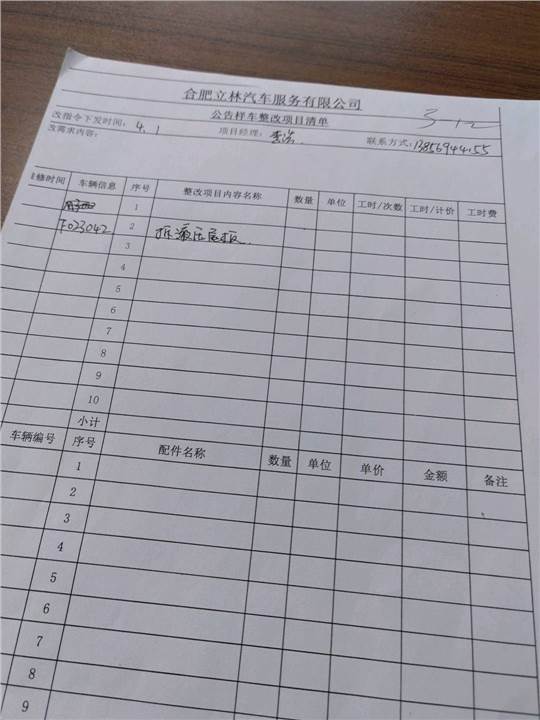 合肥立林汽车服务有限公司
3-12
公告样车整改项目清单
改指令下发时间: 4.1 项目经理: 李浩 联系方式: 13856944155
改需求内容:
维修时间 车辆信息 序号 整改项目内容名称 数量 单位 工时/次数 工时/计价 工时费
1
F023042 2 拆液压尾板
3
4
5
6
7
8
9
10
小计
车辆编号 序号 配件名称 数量 单位 单价 金额 备注
1
2
3
4
5
6
7
8
9